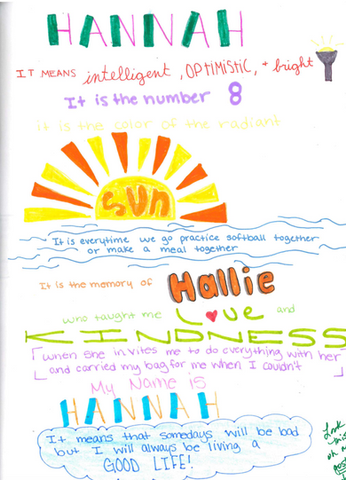 HANNAH
IT MEANS intelligent, OPTIMISTIC, + bright
It is the number 8
it is the color of the radiant
SUN
It is everytime we go practice softball together
or make a meal together
It is the memory of Hallie
who taught me Love and
KINDNESS
when she invites me to do everything with her
and carried my bag for me when I couldn't
My Name is
HANNAH
It means that somedays will be bad
but I will always be living a
GOOD LIFE!
Look